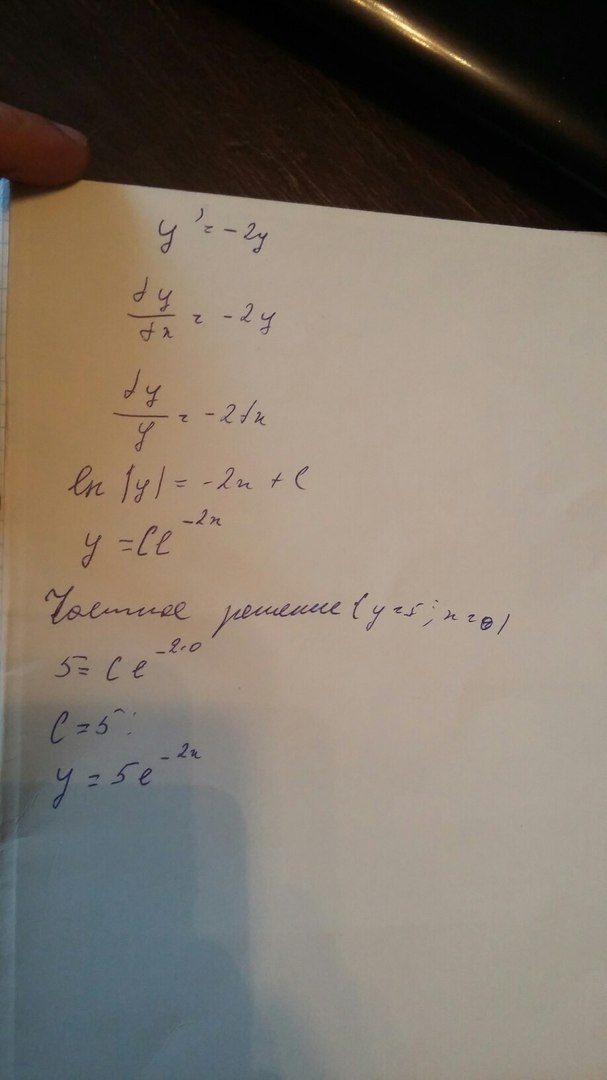 y' = -2y
dy/dx = -2y
dy/y = -2dx
ln |y| = -2x + C
y = Ce^{-2x}
Частное решение (y=5; x=0)
5 = Ce^{-2·0}
C = 5;
y = 5e^{-2x}